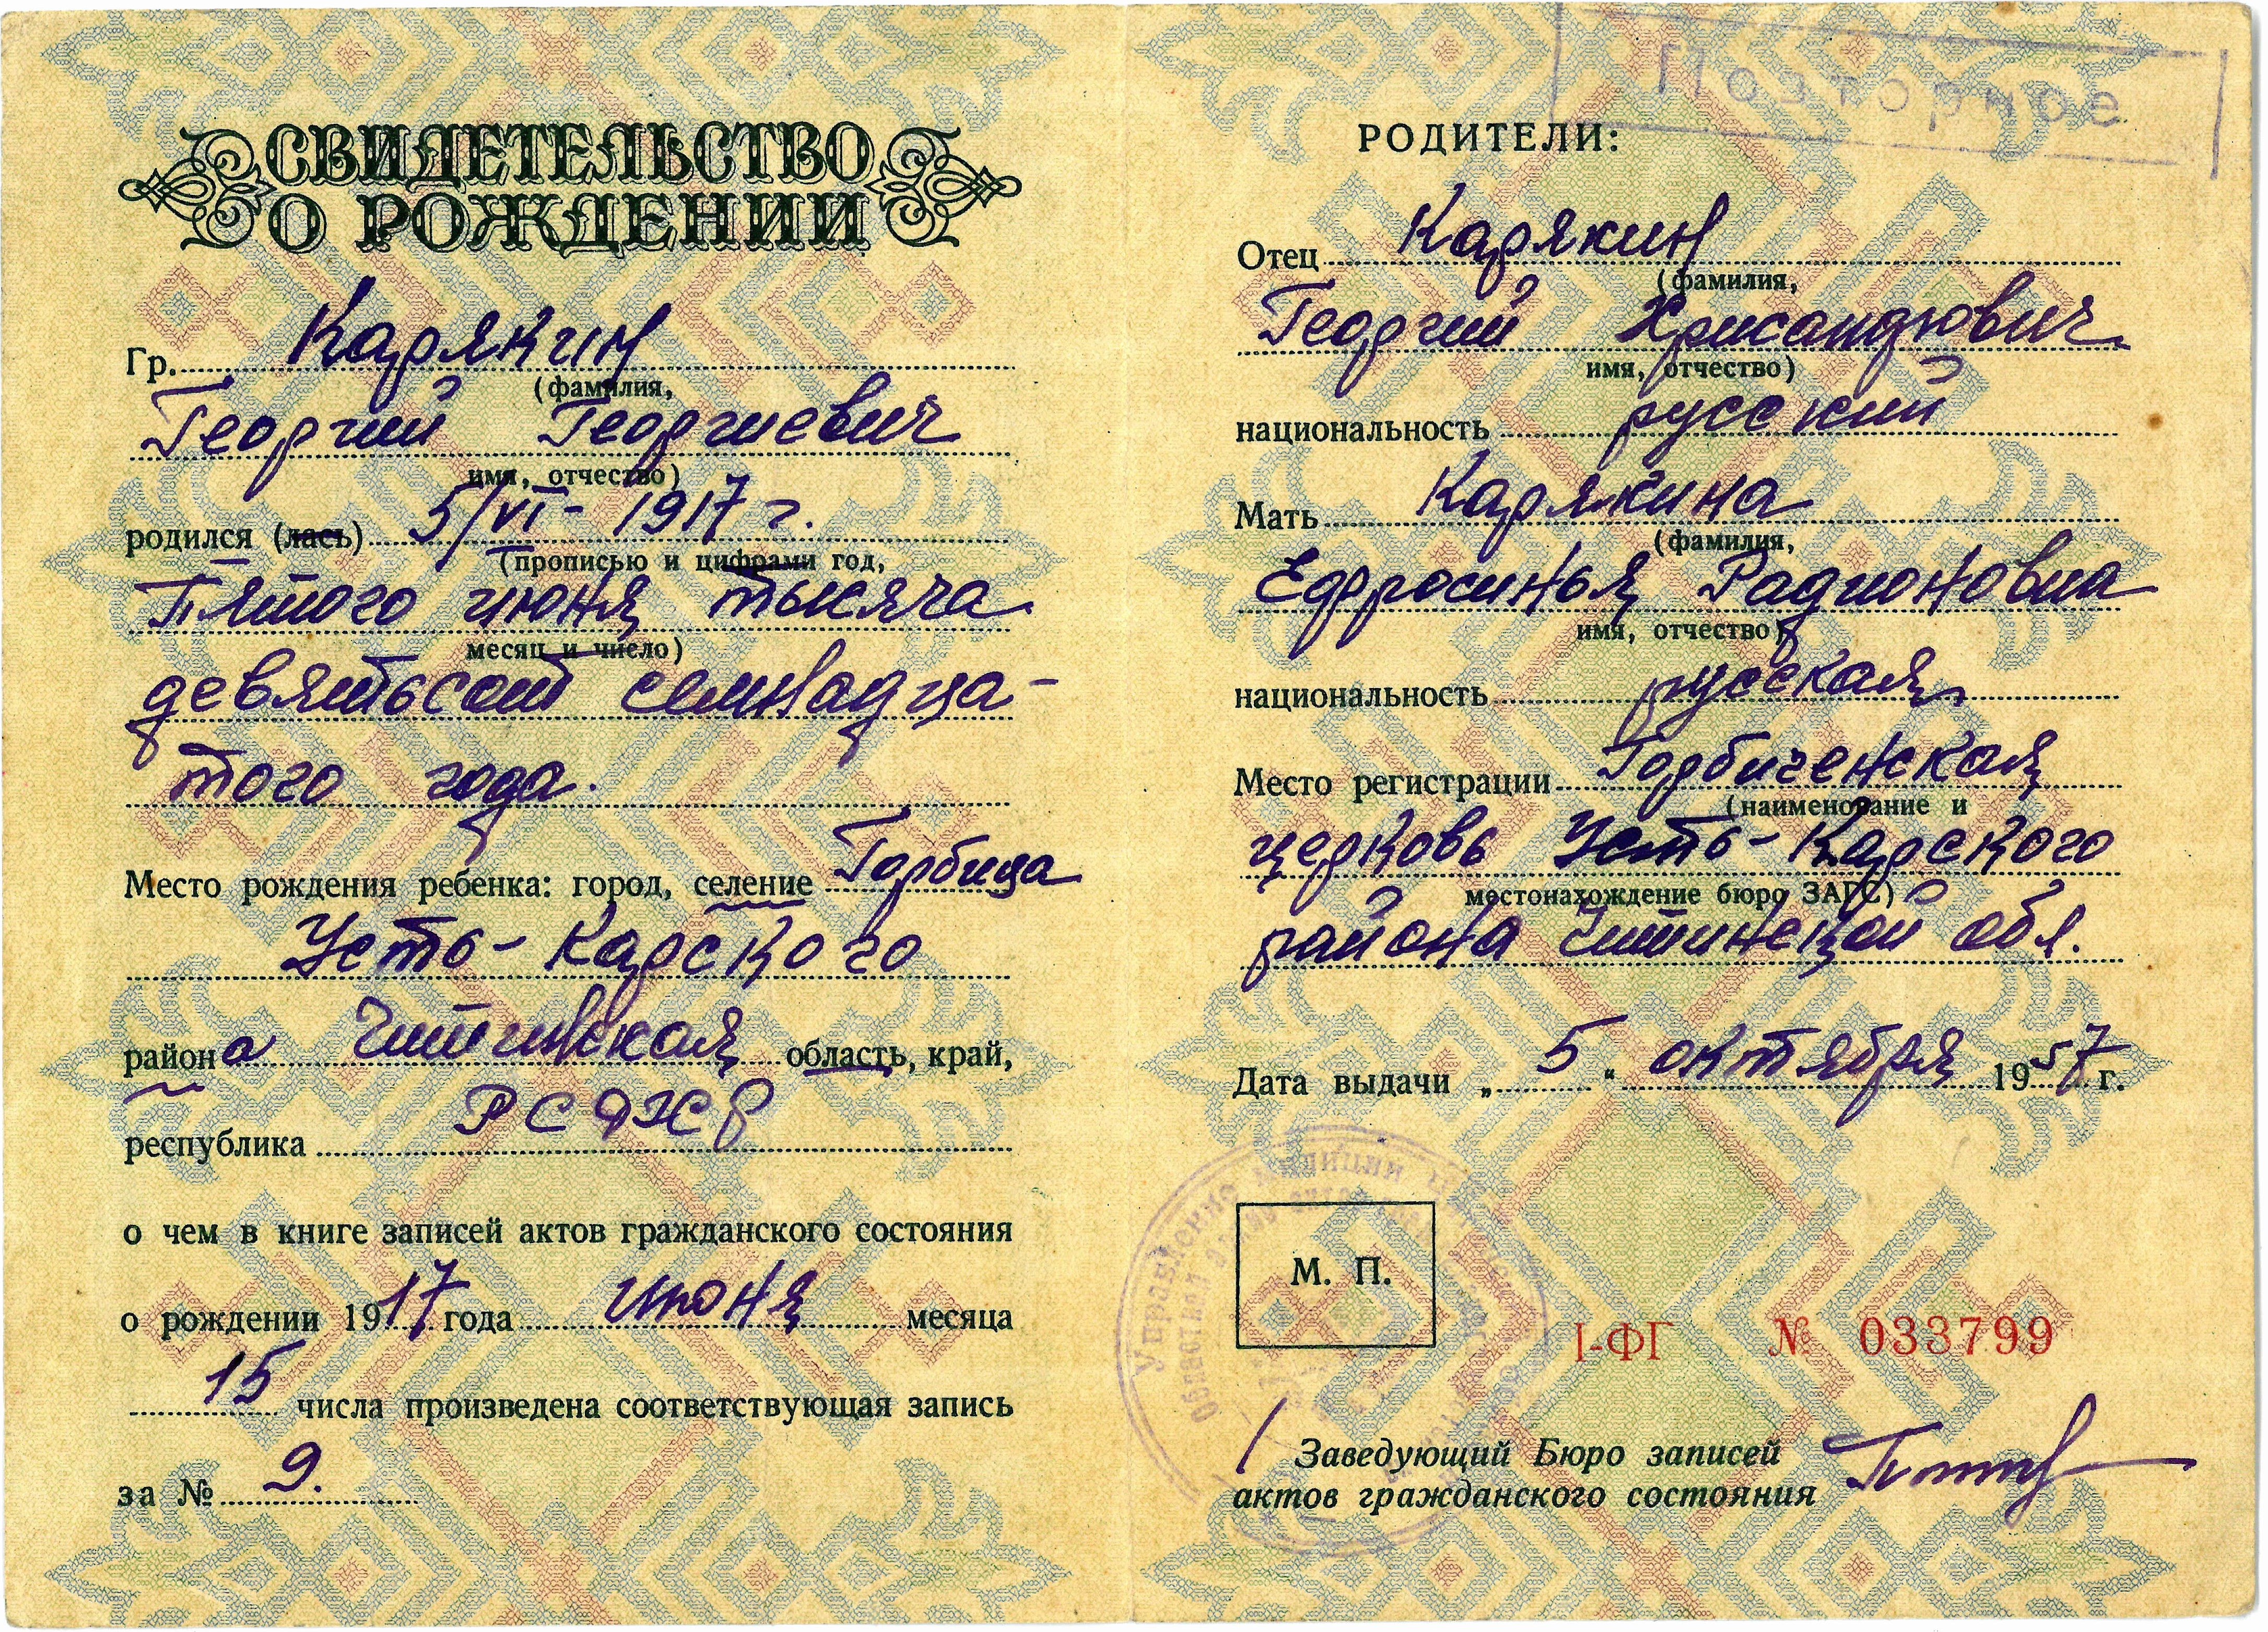 СВИДЕТЕЛЬСТВО
О РОЖДЕНИИ
Гр. Карякин
(фамилия,
Георгий Георгиевич
имя, отчество)
родился (лась) 5/VI - 1917 г.
(прописью и цифрами год,
Пятого июня тысяча
месяц и число)
девятьсот семнадца-
того года.
Место рождения ребенка: город, селение Горбица
Усть-Карского
района Читинская область, край,
республика РСФСР
о чем в книге записей актов гражданского состояния
о рождении 1917 года июня месяца
15 числа произведена соответствующая запись
за № 9.
Повторное
РОДИТЕЛИ:
Отец Карякин
(фамилия,
Георгий Хрисандович
имя, отчество)
национальность русский
Мать Карякина
(фамилия,
Ефросинья Радионовна
имя, отчество)
национальность русская
Место регистрации Горбиченская
(наименование и
церковь Усть-Карского
местонахождение бюро ЗАГС)
района Читинской обл.
Дата выдачи „5" октября 1957 г.
Управление милиции
М. П.
I-ФГ № 033799
Заведующий Бюро записей
актов гражданского состояния